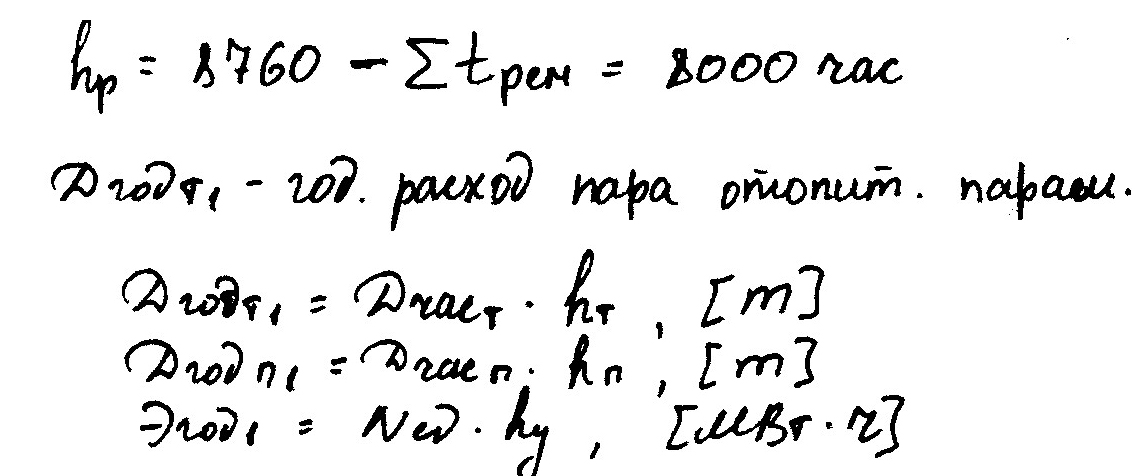 hр = 8760 − Σtрем = 8000 час
Dгодт₁ - год. расход пара отопит. парам.
Dгодт₁ = Dчаст · hт , [т]
Dгодп₁ = Dчасп · hп , [т]
Эгод₁ = Nед · hу , [МВт·ч]